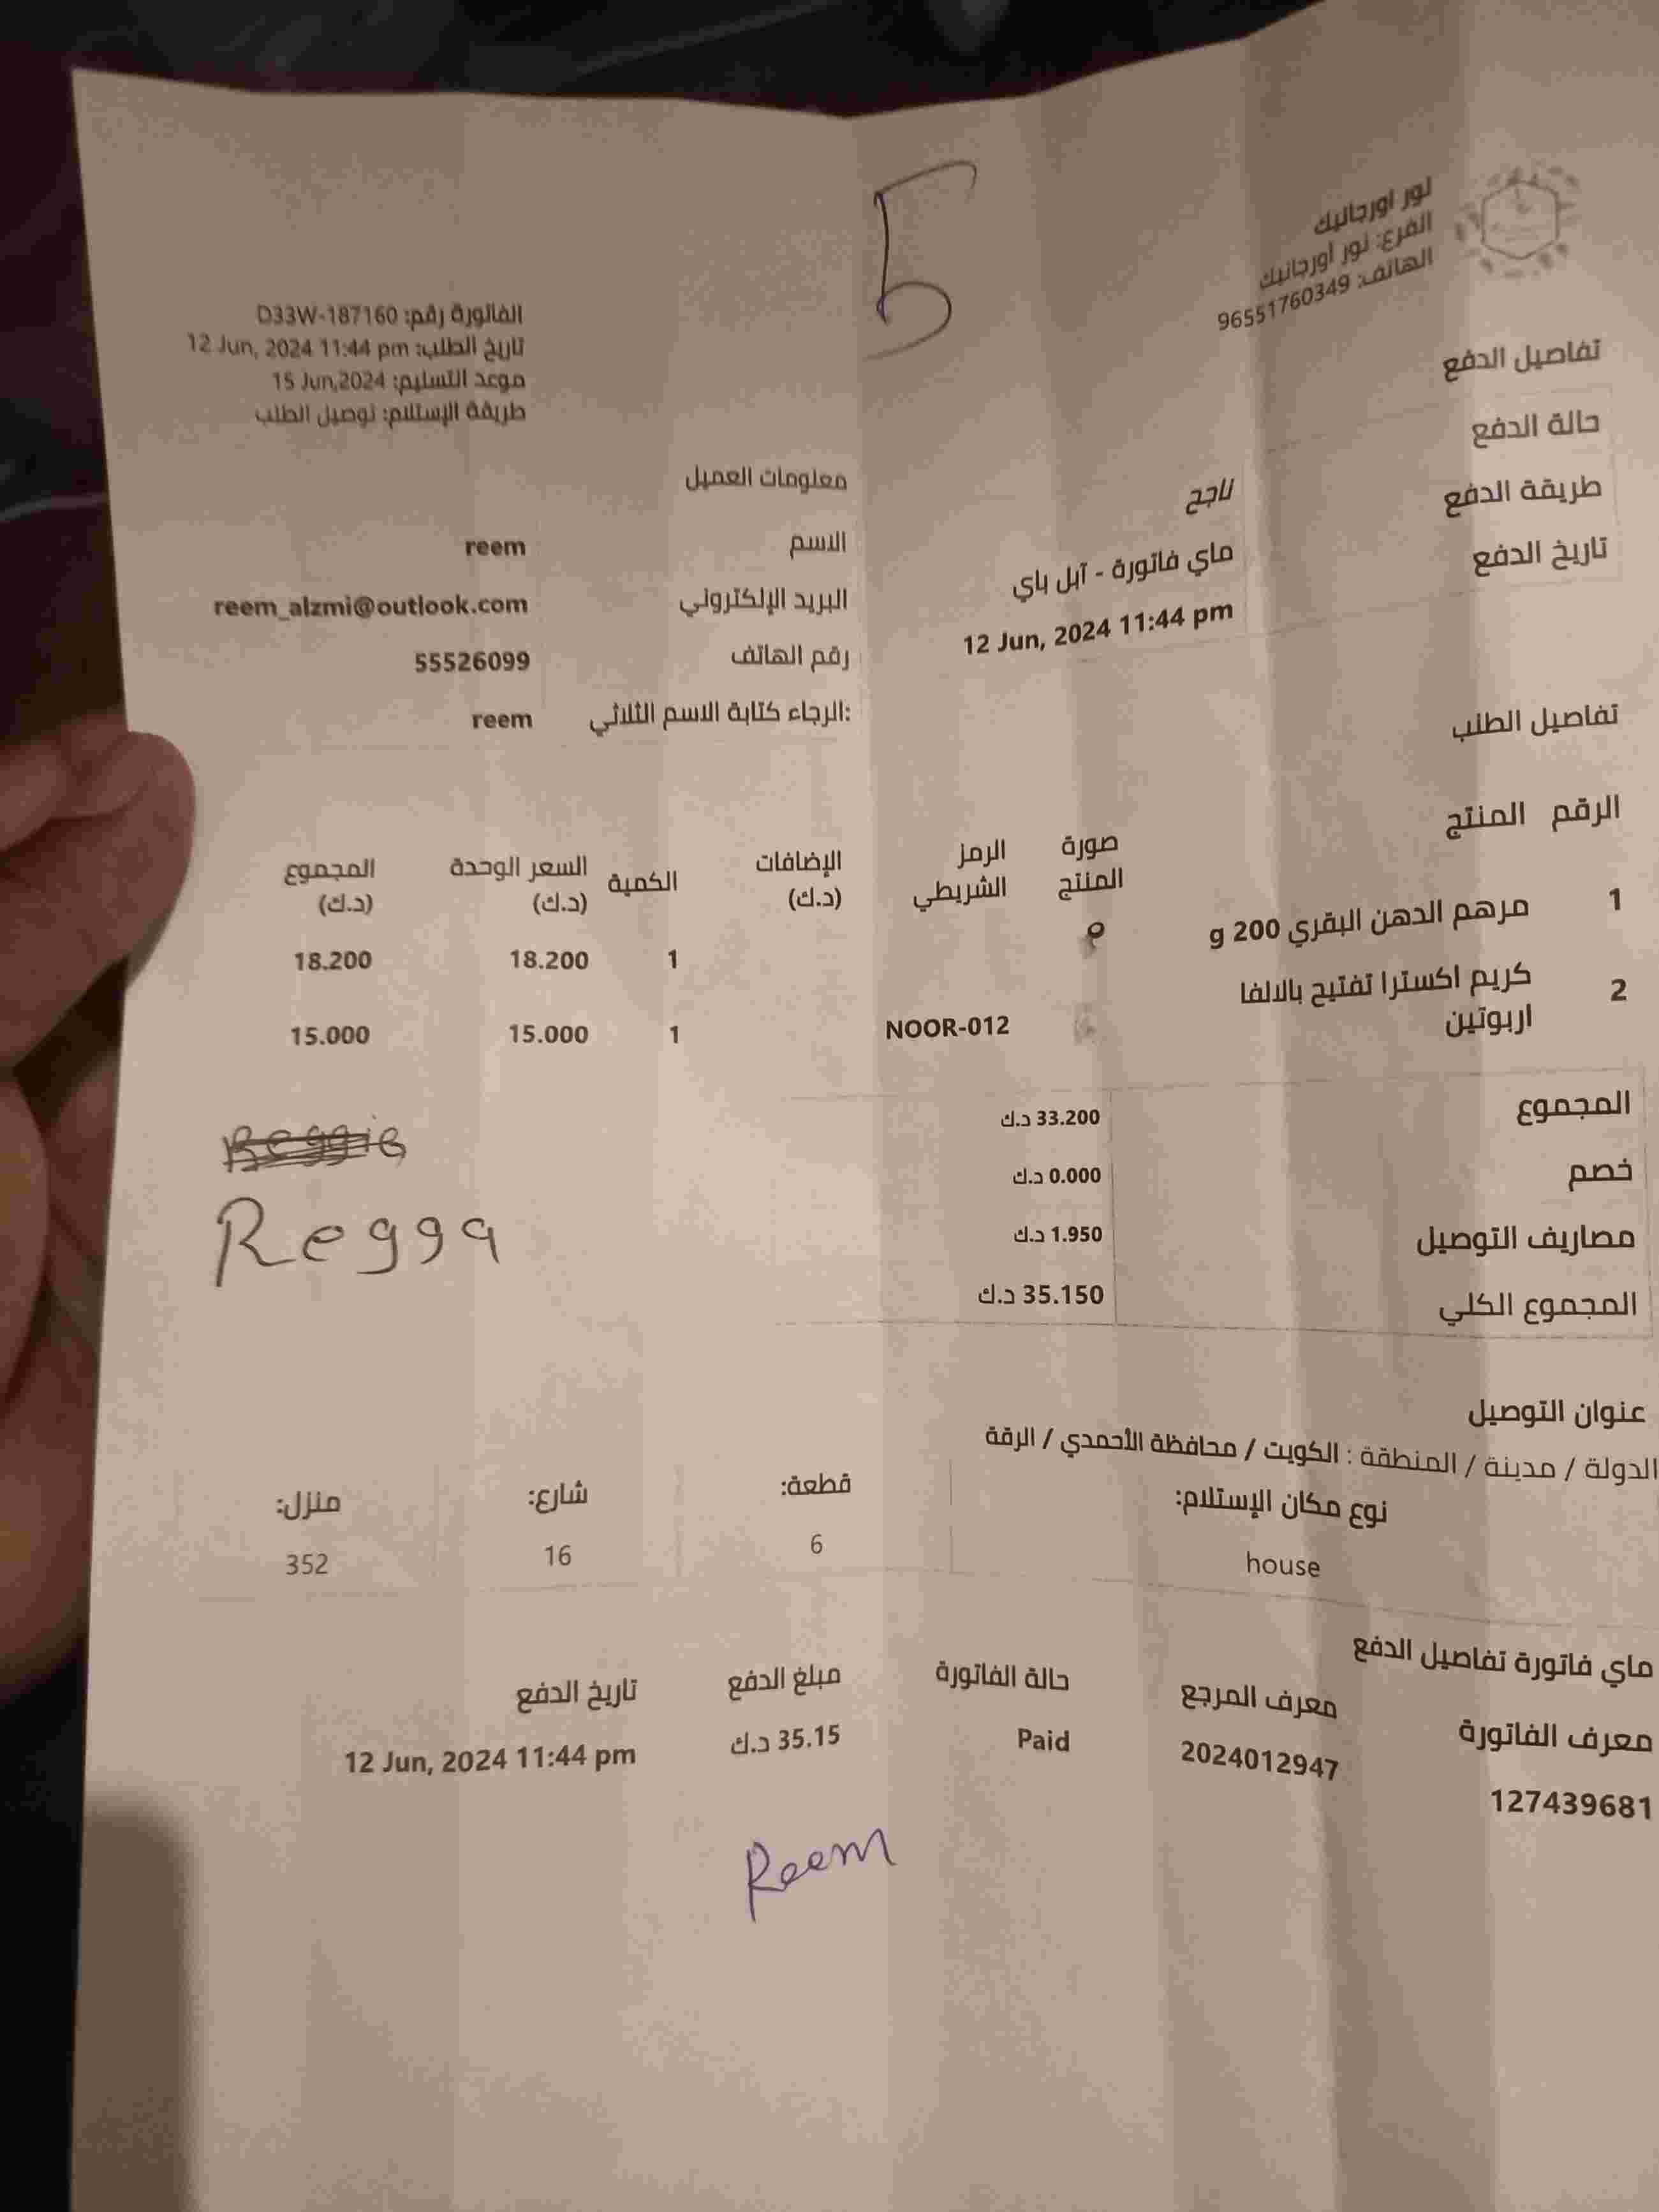 نور اورجانيك
الفرع: نور اورجانيك
الهاتف: 96551760349
5
الفاتورة رقم: D33W-187160
تاريخ الطلب: 12 Jun, 2024 11:44 pm
موعد التسليم: 15 Jun,2024
طريقة الإستلام: توصيل الطلب
تفاصيل الدفع
حالة الدفع ناجح
طريقة الدفع ماي فاتورة - آبل باي
تاريخ الدفع 12 Jun, 2024 11:44 pm
معلومات العميل
الاسم reem
البريد الإلكتروني reem_alzmi@outlook.com
رقم الهاتف 55526099
الرجاء كتابة الاسم الثلاثي: reem
تفاصيل الطلب
الرقم المنتج صورة المنتج الرمز الشريطي الإضافات (د.ك) الكمية السعر الوحدة (د.ك) المجموع (د.ك)
1 مرهم الدهن البقري 200 g 1 18.200 18.200
2 كريم اكسترا تفتيح بالالفا اربوتين NOOR-012 1 15.000 15.000
المجموع 33.200 د.ك
خصم 0.000 د.ك
مصاريف التوصيل 1.950 د.ك
المجموع الكلي 35.150 د.ك
Regga
عنوان التوصيل
الدولة / مدينة / المنطقة : الكويت / محافظة الأحمدي / الرقة
نوع مكان الإستلام: قطعة: شارع: منزل:
house 6 16 352
ماي فاتورة تفاصيل الدفع
معرف الفاتورة معرف المرجع حالة الفاتورة مبلغ الدفع تاريخ الدفع
127439681 2024012947 Paid 35.15 د.ك 12 Jun, 2024 11:44 pm
Reem